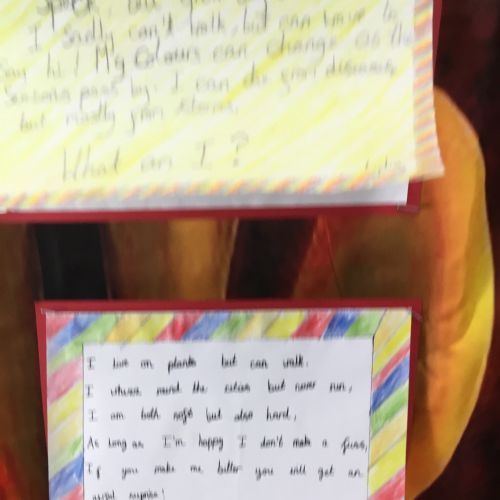 I sadly can't talk, but can wave to
Say hi! My Colours can change as the
Seasons pass by. I can die from diseases
but mostly from storms.
What am I?
I live on plants but can walk.
I the but never run,
I am both soft but also hard,
As long as I'm happy I don't make a fuss,
If you make me bitter you will get an
awful surprise!